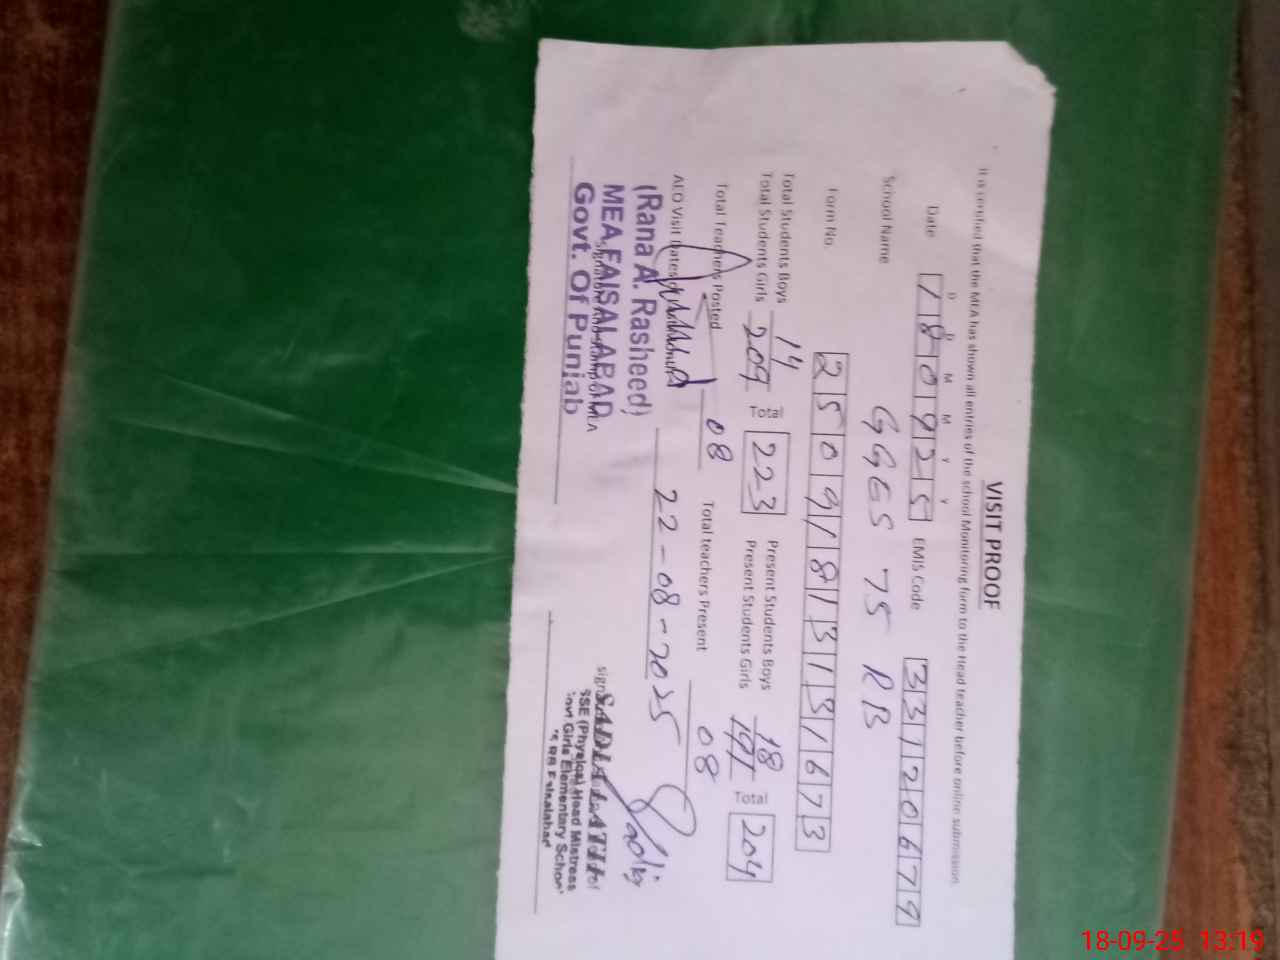 VISIT PROOF
It is certified that the MEA has shown all entries of the school Monitoring form to the Head teacher before online submission.
D D M M Y Y
Date 180925 EMIS Code 33120679
School Name GGES 75 RB
Form No. 25091813131673
Total Students Boys 14 Present Students Boys 18
Total Students Girls 209 Total 223 Present Students Girls Total 204
Total Teachers Posted 08 Total teachers Present 08
AEO Visit 22-08-2025
(Rana A. Rasheed)
MEA FAISALABAD
Govt. Of Punjab
Sadia
SADIA LATIF
SSE (Physics) Head Mistress
Govt Girls Elementary School
75 RB Faisalabad
18-09-25 13:19